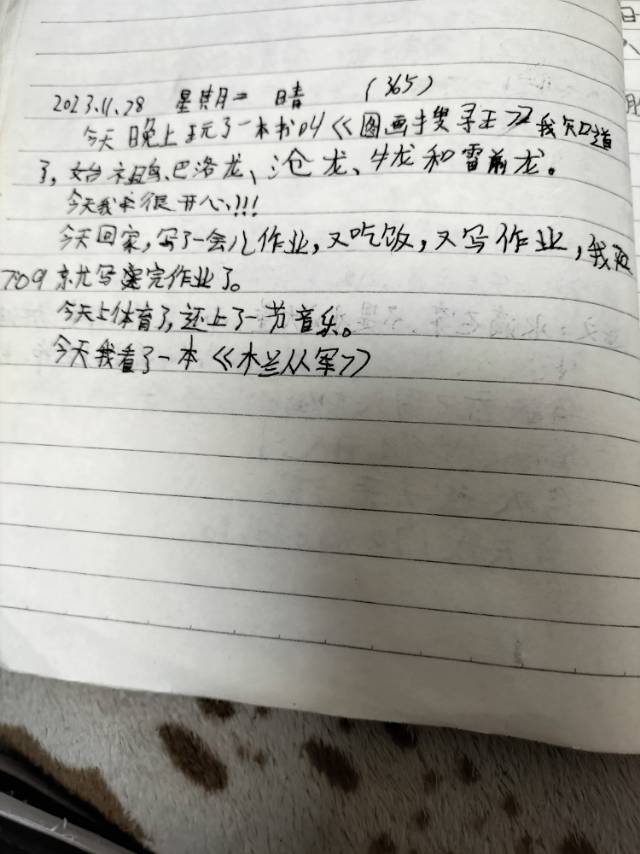 2023.11.28 星期二 晴 (365)
今天晚上玩了一本书叫《图画搜寻王》我知道
了,始祖鸟、巴洛龙、沧龙、牛龙和雷前龙。
今天我很开心!!!
今天回家,写了一会儿作业,又吃饭,又写作业,我
709就写完作业了。
今天上体育了,还上了一节音乐。
今天我看了一本《木兰从军》